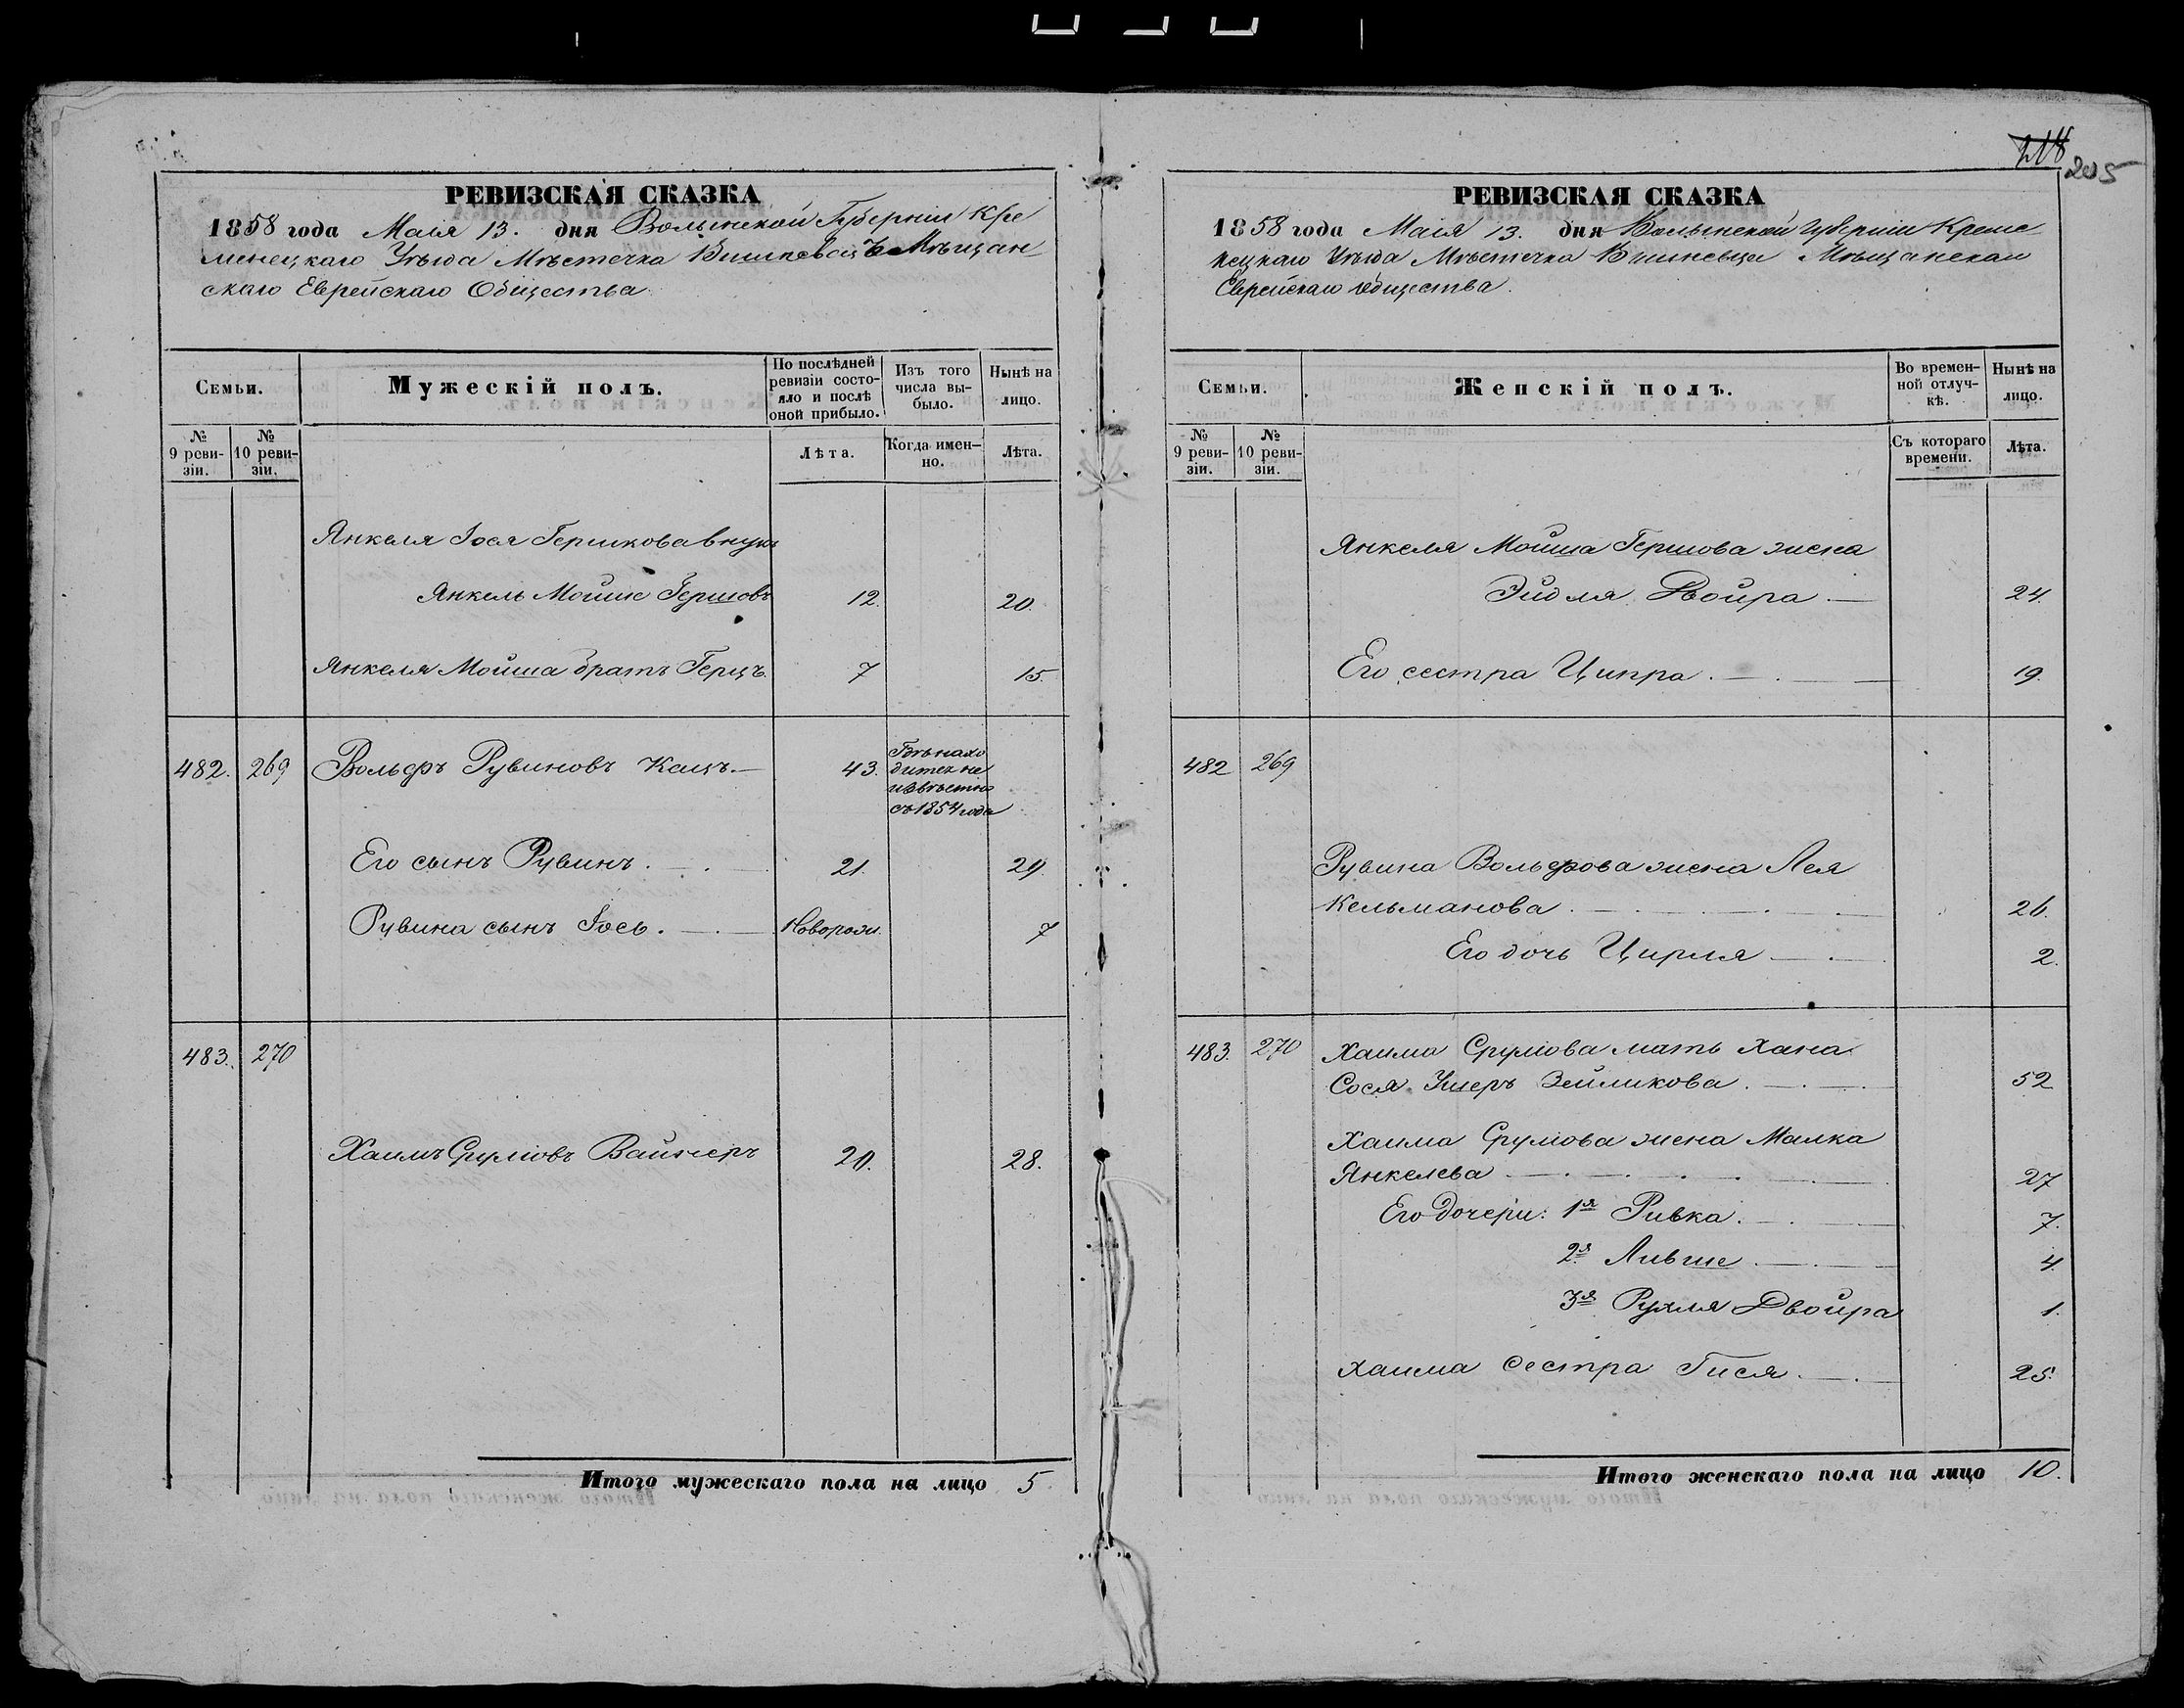 218
205
РЕВИЗСКАЯ СКАЗКА
1858 года Маія 13. дня Волынской Губерніи Кре
менецкаго Уѣзда Мѣстечка Вишневца Мѣщан
скаго Еврейскаго Общества
Семьи.
Мужескій полъ.
По послѣдней
ревизіи состо-
яло и послѣ
оной прибыло.
Изъ того
числа вы-
было.
Нынѣ на
лицо.
№
9 реви-
зіи.
№
10 реви-
зіи.
Лѣта.
Когда имен-
но.
Лѣта.
Янкеля Іося Гершкова внукъ
Янкель Мойше Гершовъ 12. 20.
Янкеля Мойша братъ Герцъ 7 15.
482. 269 Вольфъ Рувиновъ Кацъ 43.
Гдѣ нахо
дитех не
извѣстно
съ 1854 года
Его сынъ Рувинъ. 21. 29.
Рувина сынъ Іось. Новорож. 7
483. 270
Хаимъ Сруліовъ Вайнеръ 20. 28.
Итого мужескаго пола на лицо 5
РЕВИЗСКАЯ СКАЗКА
1858 года Маія 13. дня Волынской Губерніи Креме
нецкаго Уѣзда Мѣстечка Вишневца Мѣщанскаго
Еврейскаго Общества.
Семьи.
Женскій полъ.
Во времен-
ной отлуч-
кѣ.
Нынѣ на
лицо.
№
9 реви-
зіи.
№
10 реви-
зіи.
Съ котораго
времени.
Лѣта.
Янкеля Мойша Гершова жена
Эйдля Двойра 24.
Его сестра Ципра. 19.
482 269
Рувина Вольфова жена Лея
Кельманова. 26.
Его дочь Цирля 2.
483. 270 Хаима Сруліова мать Хана
Сося Ушеръ Зейликова. 52
Хаима Сруліова жена Малка
Янкелева 27
Его дочери: 1я Ривка. 7.
2я Лившe 4.
3я Рухля Двойра 1.
Хаима сестра Гися. 25.
Итого женскаго пола на лицо 10.